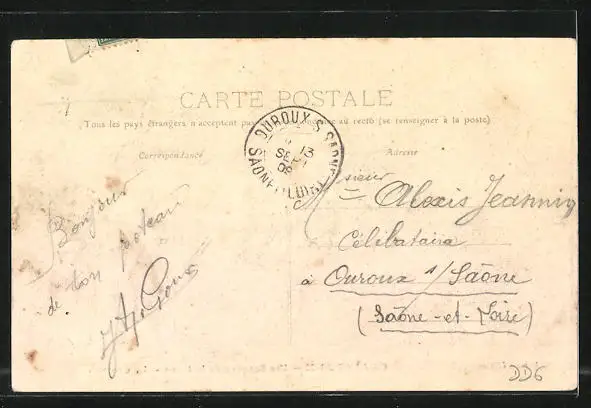 CARTE POSTALE
Tous les pays étrangers n'acceptent pas au recto (se renseigner à la poste)
Correspondance
Adresse
OUROUX-S-SAONE
13
SE
SAONE-ET-LOIRE
Bonjour
de ton poteau
Monsieur Alexis Jeannin
Célibataire
à Ouroux s/Saône
(Saône-et-Loire)
DD6